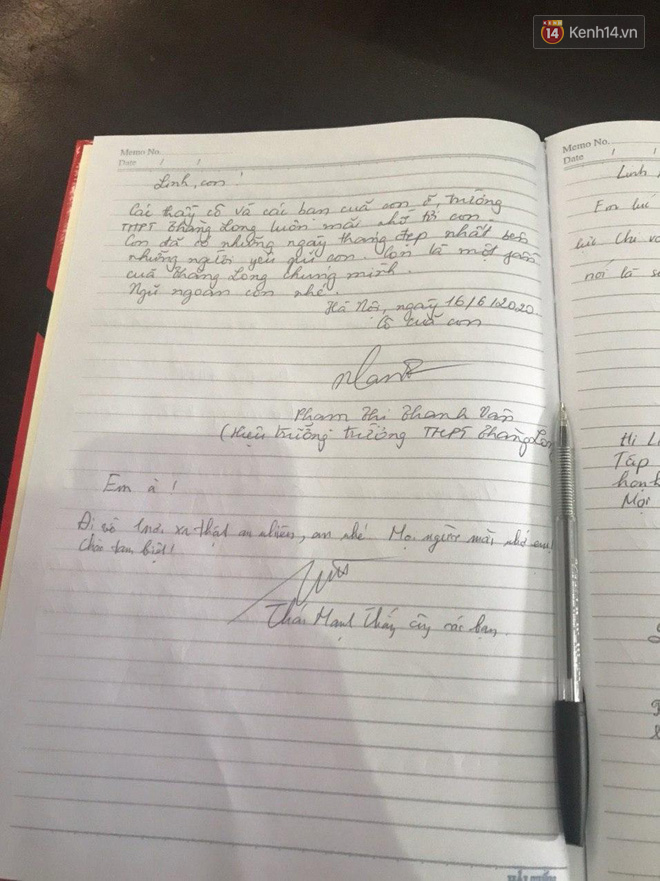 14 Kenh14.vn
Memo No.
Date / /
Linh, con!
Các thầy cô và các bạn của con ở, trường
THPT Thăng Long luôn mãi nhớ tới con.
Con đã có những ngày tháng đẹp nhất bên
những người yêu quí con. Con là một phần
của Thăng Long chúng mình.
Ngủ ngoan con nhé.
Hà Nội, ngày 16/6/2020.
Cô của con
Phạm Thị Thanh Vân
(Hiệu trưởng trường THPT Thăng Long
Em à!
Đi về nơi xa thật an nhiên, an nhé. Mọi người mãi nhớ em!
Chào tạm biệt!
các bạn.
Memo No.
Date / /
Linh
Em
nói là
Hi Li
Tập
Mọi
HẢI TIẾN